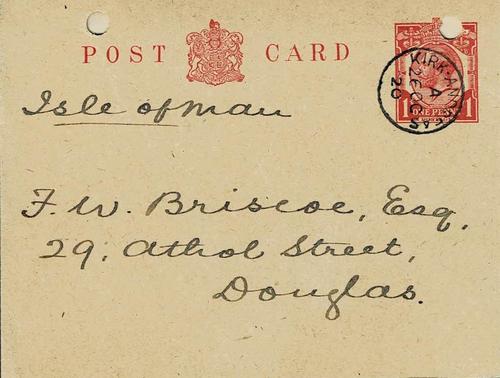 POST CARD
Isle of Man
KIRK-ANDREAS
A
20
1 ONE PENNY 1
F. W. Briscoe, Esq,
29, Athol Street,
Douglas.